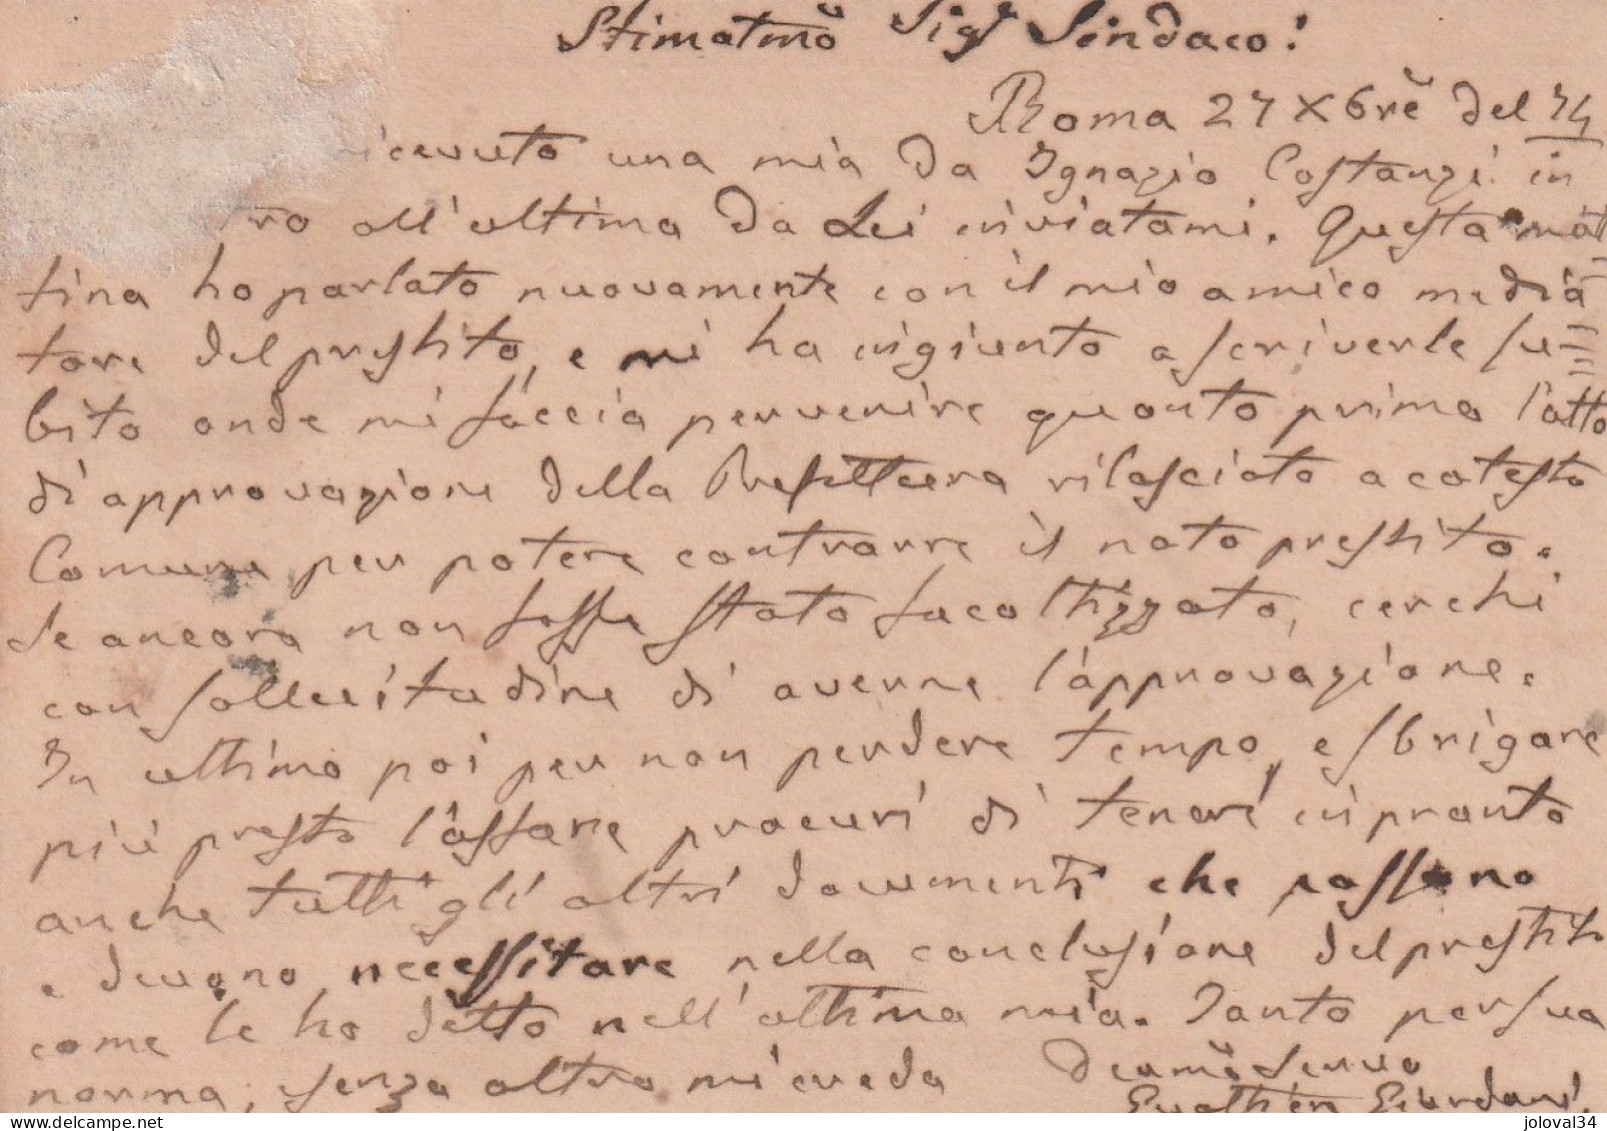 Stimatmo Sigr Sindaco!
Roma 27 Xbre del 74
icevuto una mia da Ignazio Costanzi in
ro all'ultima da Lei inviatami. Questa mat
tina ho parlato nuovamente con il mio amico media
tore del prestito, e mi ha ingiunto a scriverle su=
bito onde mi faccia pervenire quanto prima l'atto
di approvazione della Prefettura rilasciato a cotesto
Comune per potere contrarre il noto prestito.
Se ancora non fosse stato facoltizzato, cerchi
con sollecitudine di averne l'approvazione.
In ultimo poi per non perdere tempo, e sbrigare
più presto l'affare procuri di tenere in pronto
anche tutti gli altri documenti che possono
e devono necessitare nella conclusione del prestito
come le ho detto nell'ultima mia. Tanto per sua
norma, senza altro mi creda Devmo Servo
Giordani
delcampe.net
joloval34